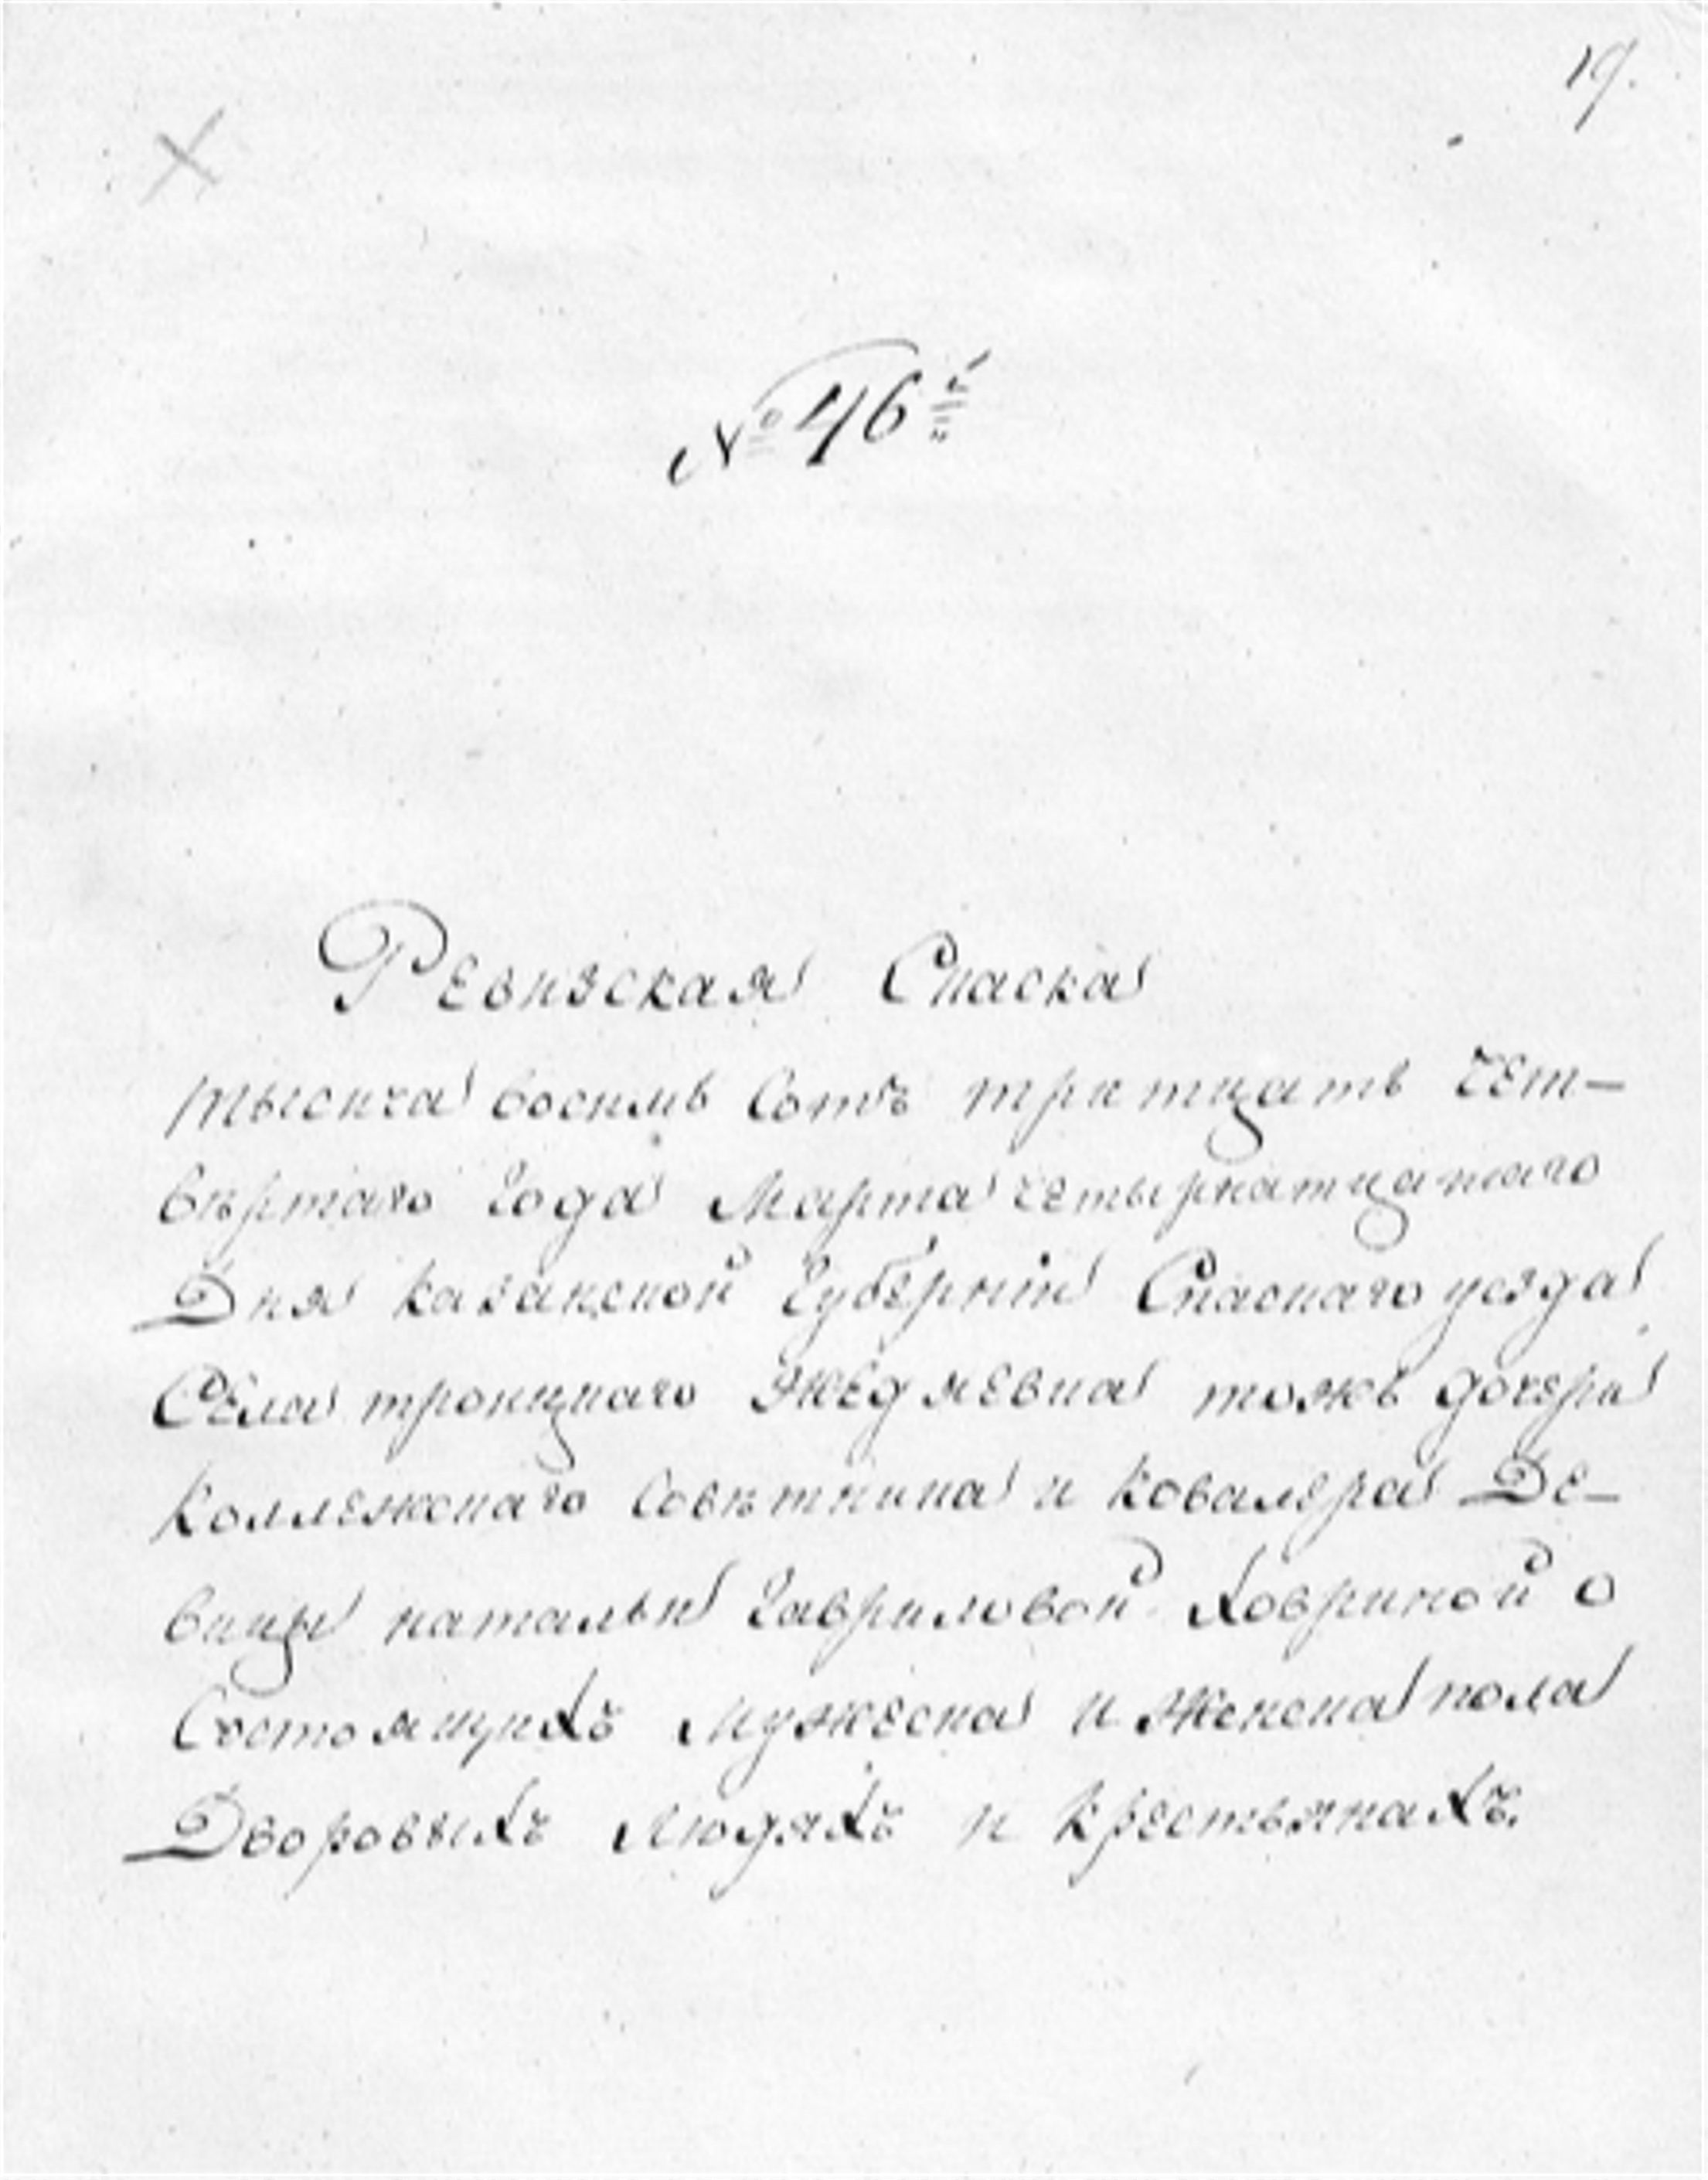 19.
№ 46й
Ревизская Спаска
тысича восимь Сотъ тритцать чет-
вѣртаго года Марта четырнатцатаго
Дня казанской губерніи Спаскаго уезда
Села троицкаго Жедяевка тожь дочери
коллежскаго Совѣтника и ковалера Де-
вицы натальи гавриловой Ховриной о
Состоящихъ мужеска и женска пола
Дворовыхъ людяхъ и крестьянахъ.